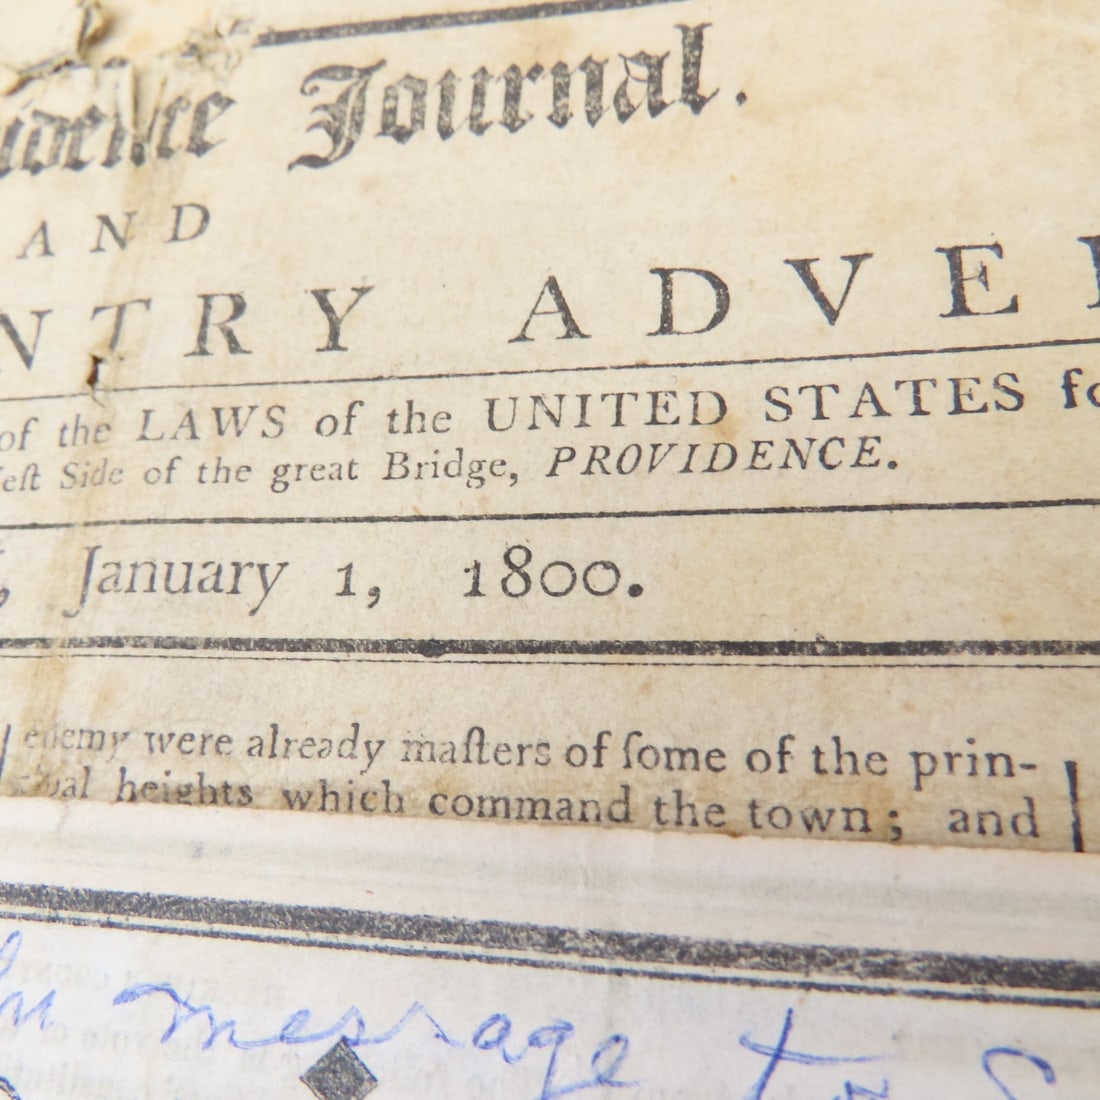 idence Journal.
AND
NTRY ADVE
of the LAWS of the UNITED STATES fo
eſt Side of the great Bridge, PROVIDENCE.
, January 1, 1800.
enemy were already maſters of ſome of the prin-
cipal heights which command the town; and
message to